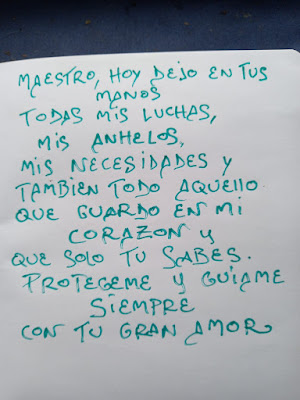 MAESTRO, HOY DEJO EN TUS
MANOS
TODAS MIS LUCHAS,
MIS ANHELOS,
MIS NECESIDADES Y
TAMBIEN TODO AQUELLO
QUE GUARDO EN MI
CORAZON Y
QUE SOLO TU SABES.
PROTEGEME Y GUIAME
SIEMPRE
CON TU GRAN AMOR